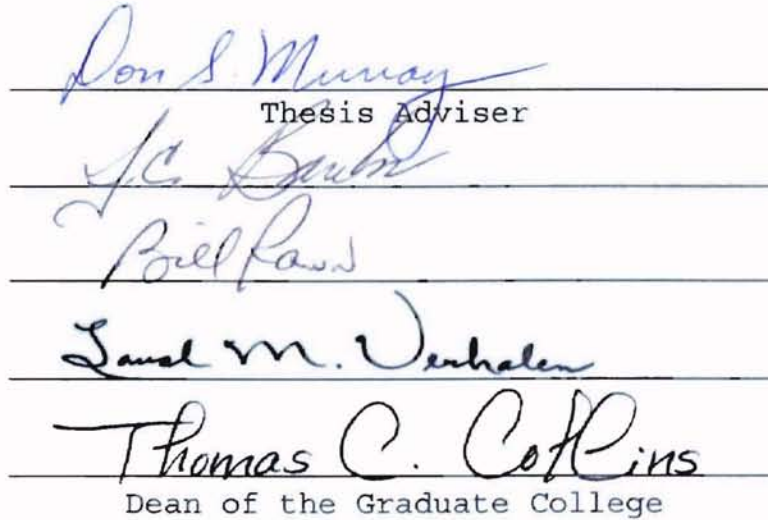 Don S. Murray
Thesis Adviser
J.C.
Bill
M. Verhalen
Thomas C. Collins
Dean of the Graduate College